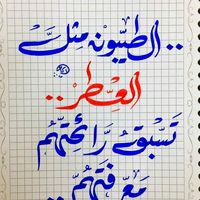 .. الطيّبون مِثلَ
العِطر ..
تَسبقُ رَائِحَتهُم
مَعرفَتهُم ..